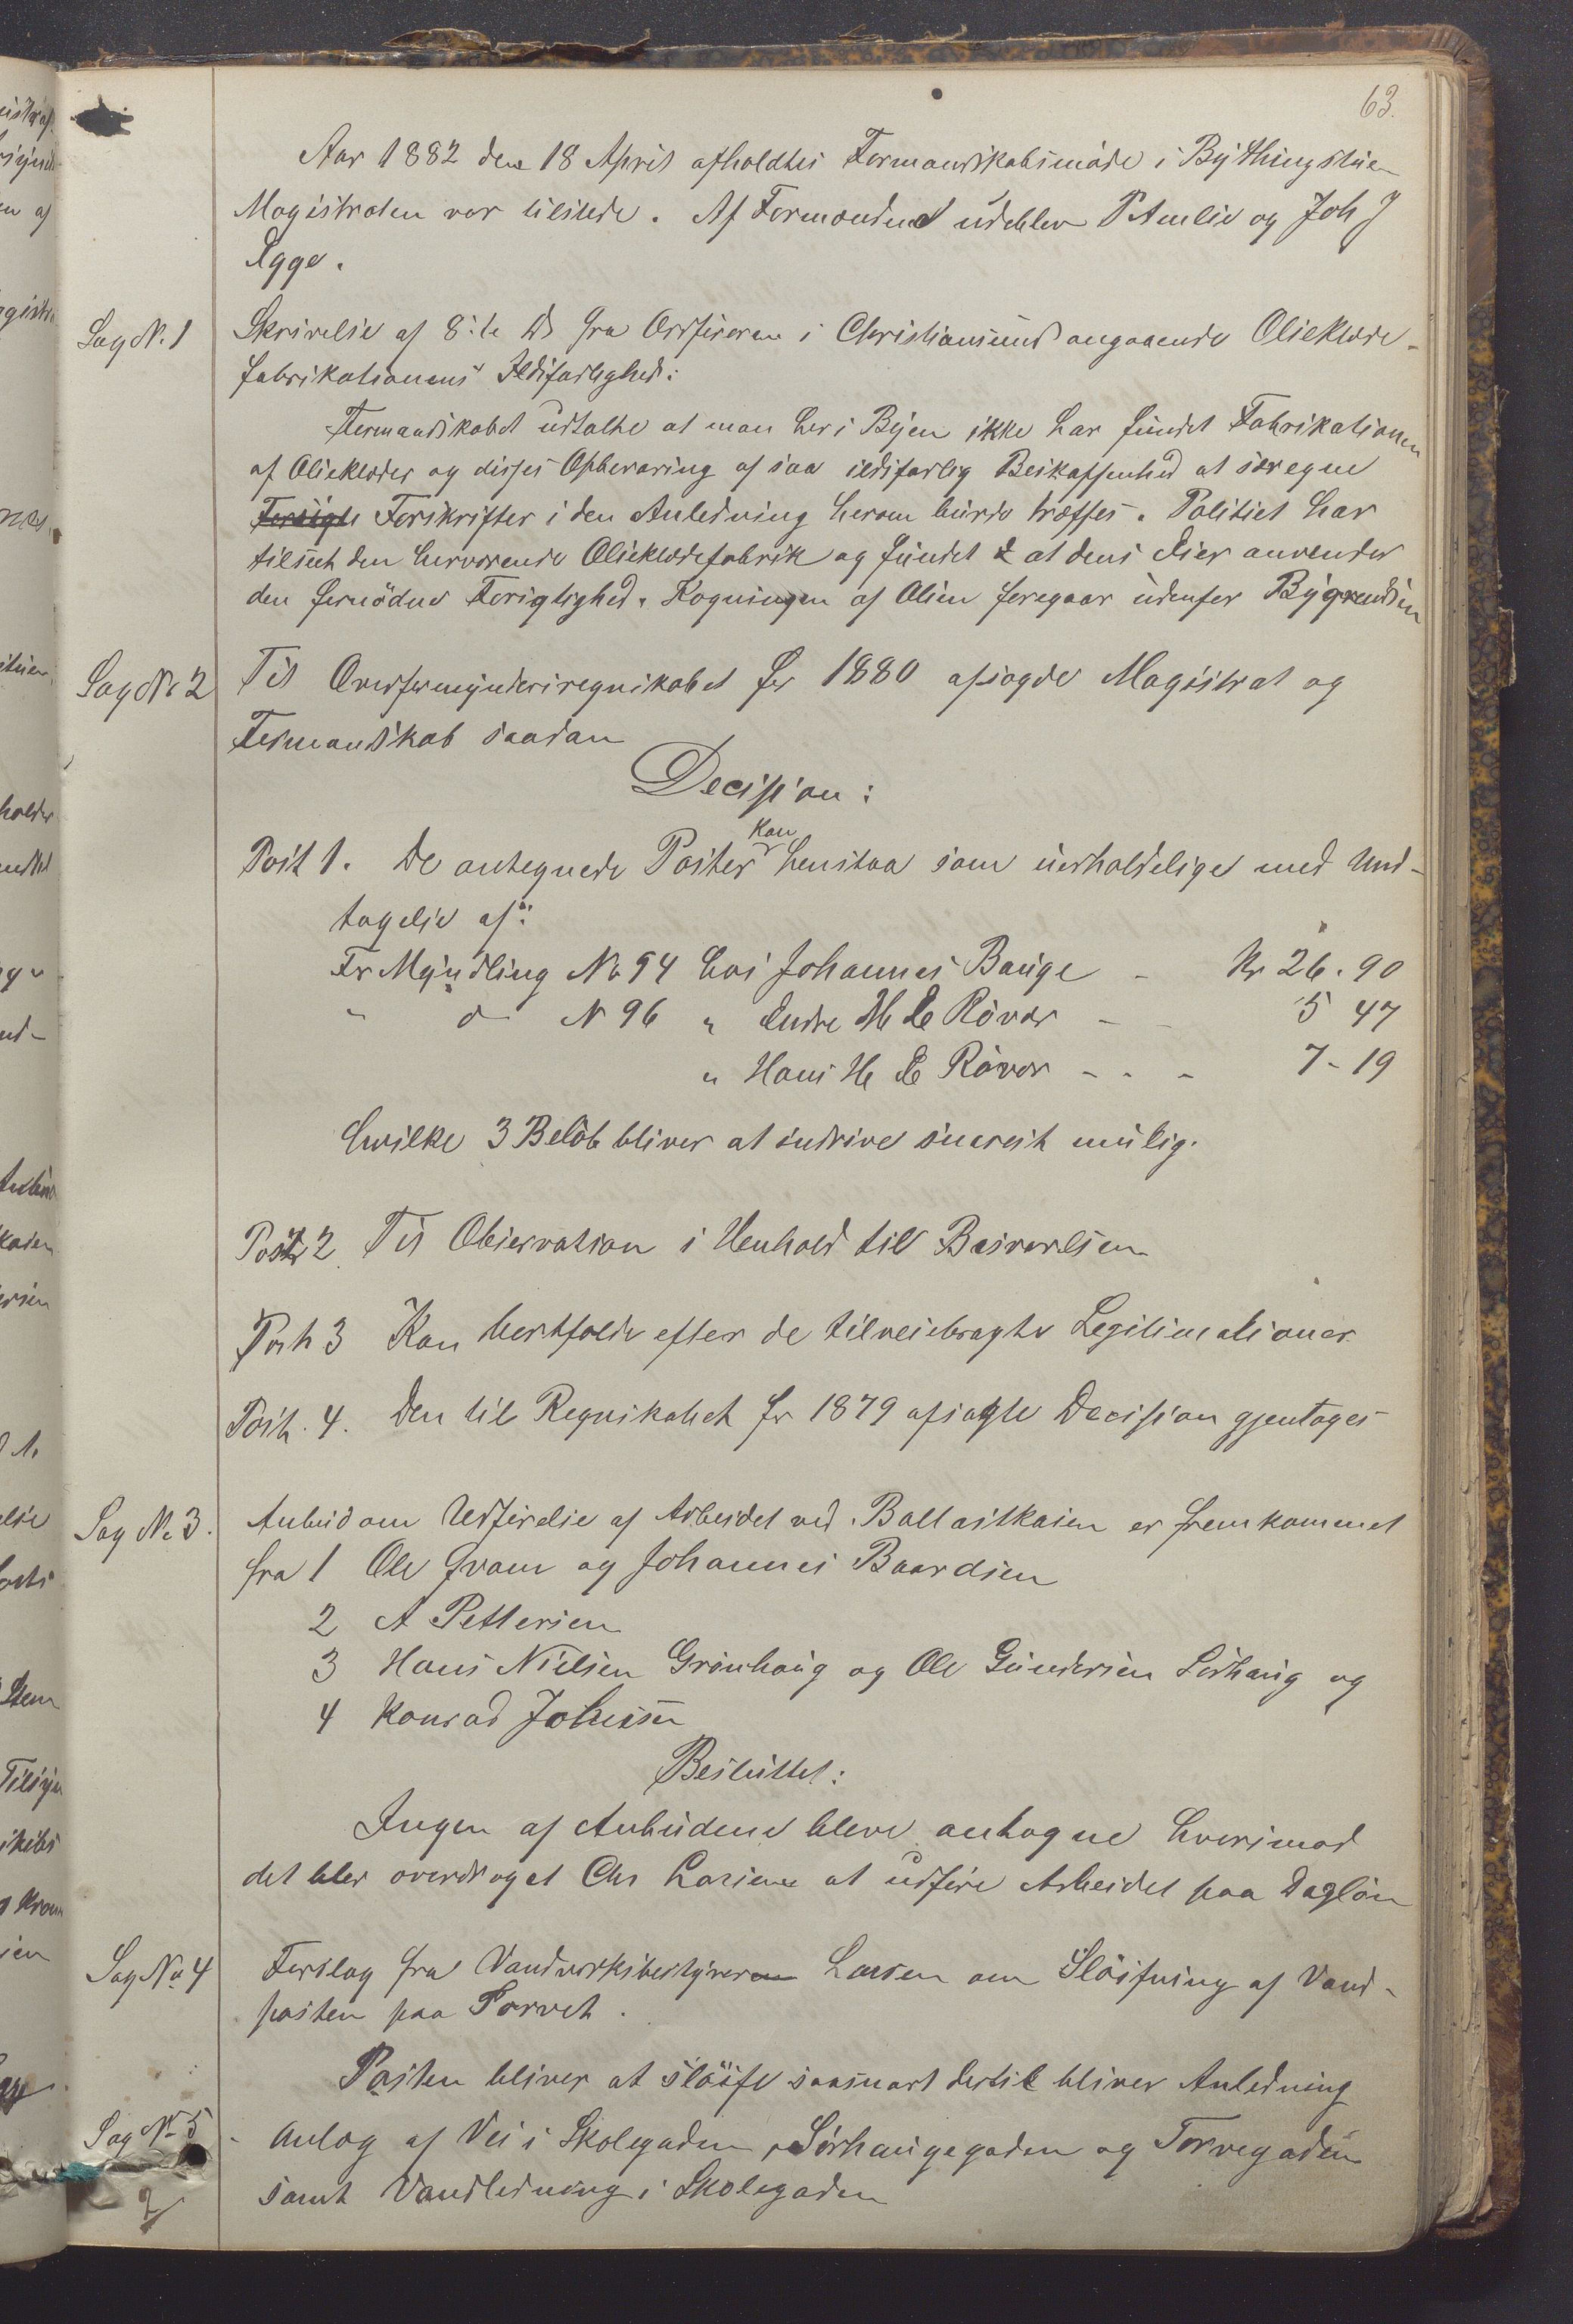 63.
Aar 1882 den 18 April afholdtes Formandskabsmøde i Bythingstuen
Magistraten var tilstede. Af Formændene udeblev P Amlie og Joh J
Egge.
Sag No. 1 Skrivelse af 8:de ds fra Ordføreren i Christiansund angaaende Olieklæde-
fabrikationens Ildsfarlighed:
Formandskabet udtalte at man her i Byen ikke har fundet Fabrikationen
af Olieklæder og disses Opbevaring af saa ildsfarlig Beskaffenhed at særegne
Forsigt Forskrifter i den Anledning herom burde træffes. Politiet har
tilseet den herværende Olieklædefabrik og fundet at dens Eier anvender
den fornødne Forsigtighed. Kogningen af Olien foregaar udenfor Bygrændsen
Sag No 2 Til Overformynderiregnskabet for 1880 afsagde Magistrat og
Formandskab saadan
Decision:
Post 1. De antegnede Poster kan henstaa som uerholdelige med Und-
tagelse af:
For Myndling No 94 hos Johannes Bauge - Kr 26.90
" d N 96 " Endre H E Røvær - - 5 47
" Hans H E Røvær - - - 7-19
hvilke 3 Beløb bliver at inddrive snarest mulig.
Post 2 Til Observation i Henhold til Besvarelsen
Post 3 Kan bortfalde efter de tilveiebragte Legitimationer
Post. 4. Den til Regnskabet for 1879 afsagte Decision gjentages
Sag No 3. Anbud om Udførelse af Arbeidet ved Ballastkaien er fremkommet
fra 1 Ole Qvam og Johannes Baardsen
2 A Pettersen
3 Hans Nielsen Grønhaug og Ole Gundersen Sørhaug og
4 Konrad Johnssen
Besluttet:
Ingen af Anbudene bleve antagne hvorimod
det blev overdraget Chr Larsen at udføre Arbeidet paa Dagløn
Sag No 4 Forslag fra Vandværksbestyrer Larsen om Sløifning af Vand-
posten paa Torvet.
Posten bliver at sløife saasnart dertil bliver Anledning
Sag No 5 - Anlæg af Vei i Skolegaden, Sørhauggaden og Torvegaden
samt Vandledning i Skolegaden